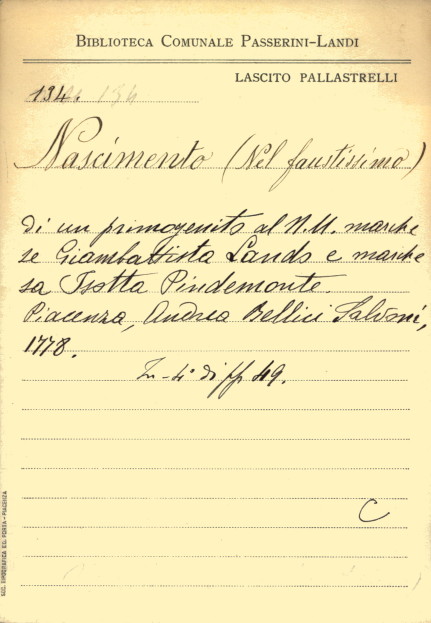 BIBLIOTECA COMUNALE PASSERINI-LANDI
LASCITO PALLASTRELLI
134.
Nascimento (Nel faustissimo)
di un primogenito al N.U. marche
se Giambattista Lando e marche
sa Isotta Pindemonte.
Piacenza, Andrea Bellici Salvoni,
1778.
In-4° di pp 49.
C
SOC. TIPOGRAFICA DEL PORTA - PIACENZA